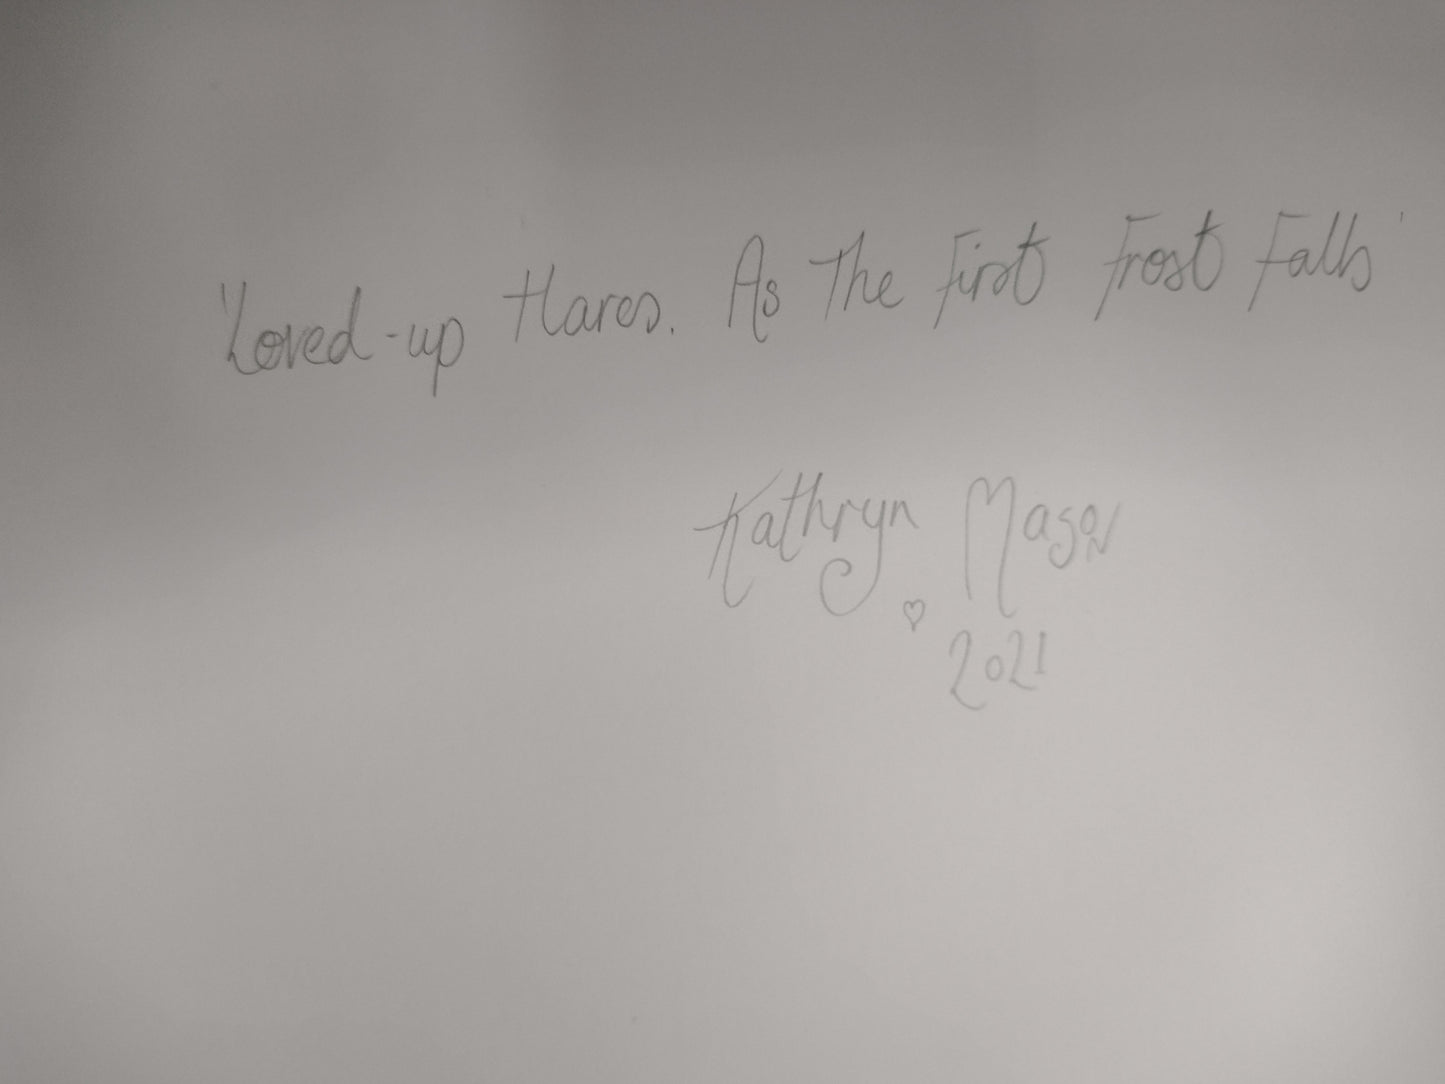 'Loved-up Hares. As The First Frost Falls'
Kathryn Mason
2021